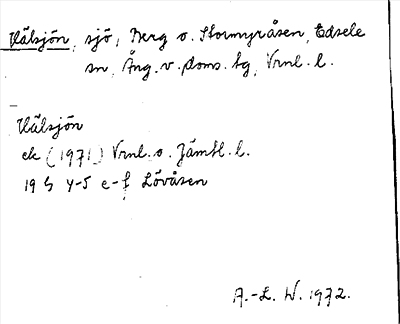 Hälsjön, sjö, Berg o. Stormyråsen, Edsele
sn, Ång. v. doms. tg, Vrnl. l.
Hälsjön
ek (1971) Vrnl. o. Jämtl. l.
19 G 4-5 e-f Lövåsen
A.-L. W. 1972.